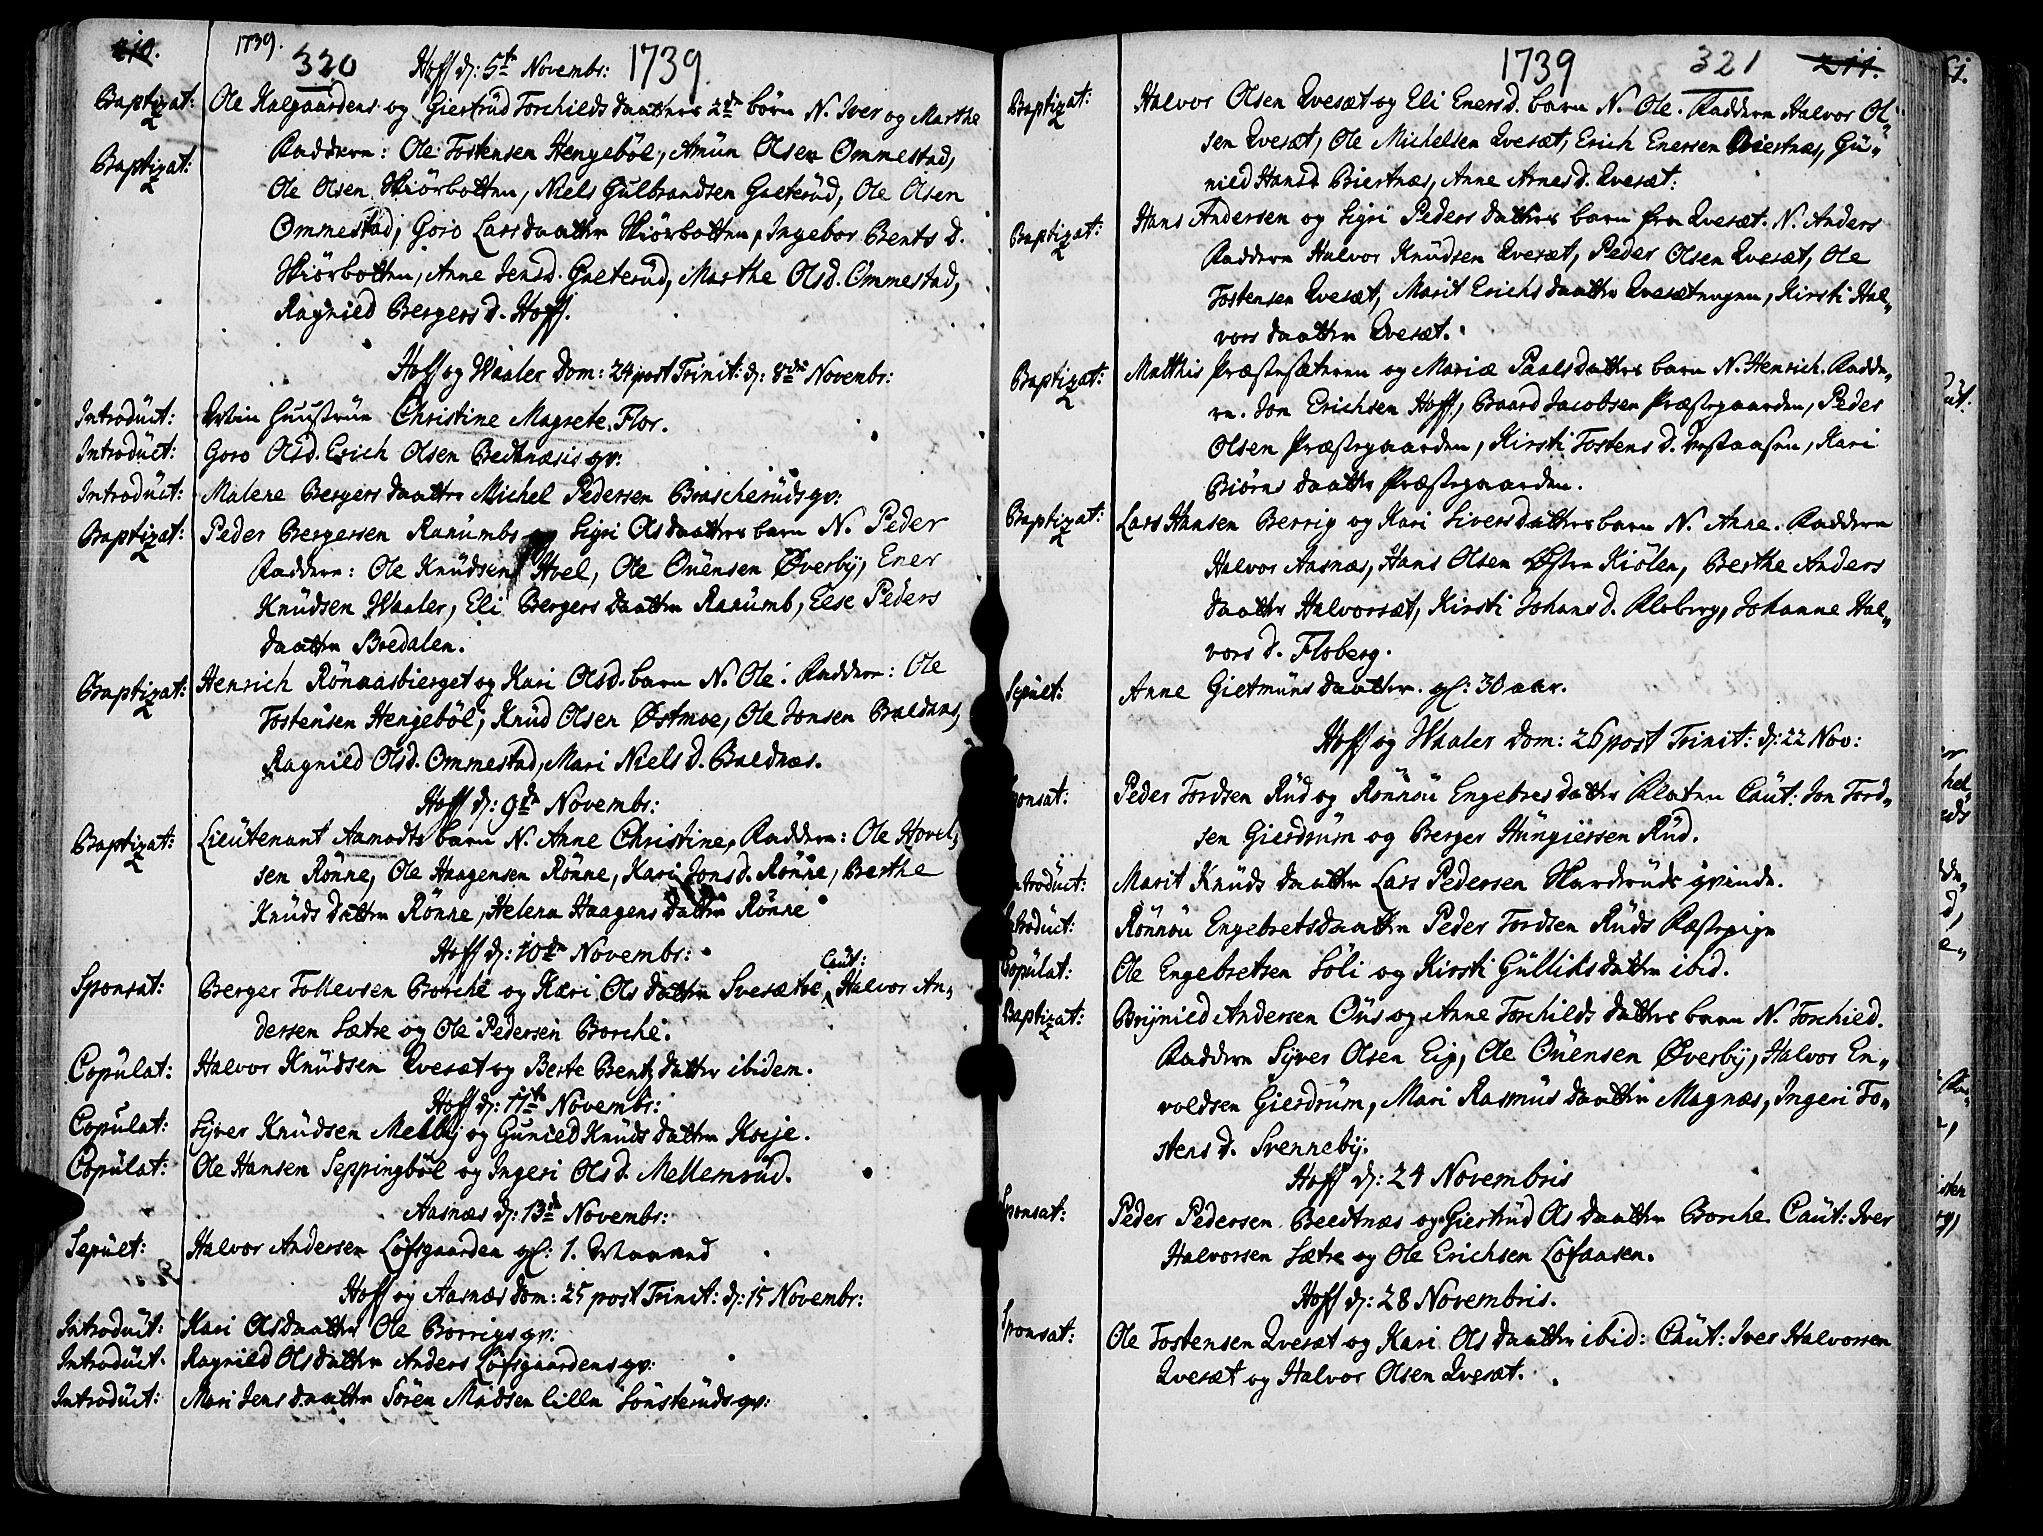 210.
1739.
320
Hoff d: 5te Novembr: 1739
Baptizat: Ole Kalgaardens og Giertrud Torchilds daatters 2de börn N. Iver og Marthe
Baptizat: Faddern: Ole Tostensen Hengeböl, Amun Olsen Ommestad,
Ole Olsen Skiörbotten, Niels Gulbrandsen Gaeterud, Ole Olsen
Ommestad, Goro Larsdaatter Skiörbotten, Ingebor Bents d.
Skiörbotten, Anne Jensd. Gaeterud, Marthe Olsd. Ommestad,
Ragnied Bergersd. Hoff.
Hoff og Waaler Dom: 24 post Trinit: d: 8de Novembr:
Introduct: Min Huustrue Christine Magrete Flor.
Introduct: Goro Olsd. Erich Olsen Bedtnæsis qv:
Introduct: Malene Bergers daatter Michel Pedersen Brascheruds qv:
Baptizat: Peder Bergersen Ranumbs og Sigri Olsdaatters barn N. Peder
Faddern: Ole Knudsen Hoel, Ole Onensen Øverby, Ener
Knudsen Waaler, Eli Bergers daatter Ranumb, Else Peders
daatter Bredalen.
Baptizat: Henrich Rönaasbierget og Kari Olsd. barn N. Ole. Faddern: Ole
Tostensen Hengeböl, Knud Olsen Østmoe, Ole Jonsen Baldnes,
Ragnild Olsd. Ommestad, Mari Niels d. Baldnæs.
Hoff d: 9de Novembr:
Baptizat: Lieutenant Aamodts barn N. Anne Christine, Faddern: Ole Hovel,,
sen Rönne, Ole Haagensen Rönne, Kari Jonsd. Rönne, Berthe
Knuds datter Rönne, Helena Haagens datter Rönne
Hoff d: 10de Novembr:
Sponsat: Berger Tollevsen Borche og Kari Ols datter Svesætre Caut: Halvor An,,
dersen Sætre og Ole Pedersen Borche.
Copulat: Halvor Knudsen Qvesæt og Berte Bentz datter ibidem.
Hoff d: 11te Novembr:
Copulat: Syver Knudsen Melby og Gunied Knuds datter Koeje.
Copulat: Ole Hansen Seppingböl og Ingeri Ols d. Mellemrud.
Aasnæs d: 13de Novembr:
Sepult: Halvor Andersen Löfsgaarden gl: 1. Maaned
Hoff og Aasnæs Dom: 25 post Trinit: d: 15 Novembr:
Introduct: Kari Olsdaatter Ole Borrigs qv:
Introduct. Ragnild Olsdatter Anders Löfsgaardens qv:
Introduct: Mari Jens daatter Sören Madsen lille Sönsteruds qv:
1739
321
211.
Baptizat: Halvor Olsen Qvesæt og Eli Enersd. barn N. Ole. Faddern Halvor Ol,,
sen Qvesæt, Ole Michelsen Qvesæt, Erich Enersen Biertnæs, Gu,,
nied Hansd Biertnæs, Anne Arnesd. Qvesæt:
Baptizat: Hans Andersen og Sigri Peders datters barn fra Qvesæt. N. Anders
Faddern Halvor Knudsen Qvesæt, Peder Olsen Qvesæt, Ole
Tostensen Qvesæt, Marit Erichs daatter Qvesætengen, Kirsti Hal,,
vors daatter Qvesæt.
Baptizat: Matthis Præstesæteren og Mariæ Paalsdatters barn N. Henrich. Fadde,,
rn. Jon Erichsen Hoff, Baard Jacobsen Præstegaarden, Peder
Olsen Præstegaarden, Kirsti Tostens d. Vestaasen, Kari
Biörns daatter Præstegaarden.
Baptizat: Lars Hansen Berrig og Kari Siversdatters barn N. Anne. Faddern
Halvor Aasnæs, Hans Olsen Østre Kiölen, Berthe Anders
daatter Halvorsæt, Kirsti Johans d. Floberg, Johanne Hal,,
vors d. Floberg.
Sepult: Anne Gietmuns daatter. gl: 30 aar.
Hoff og Waaler Dom: 26 post Trinit: d: 22 Nov:
Sponsat: Peder Tordsen Rud og Rönnou Engebres datter Flaten Caut: Jon Tord,,
sen Gierdrum og Berger Hungiersen Rud.
Introduct: Marit Knuds daatter Lars Pedersen Harderuds qvinde.
Introduct: Rönnou Engebretsdaatter Peder Tordsen Ruds Fæstepige
Copulat: Ole Engebretsen Soli og Kirsti Gulliksdatter ibid.
Baptizat: Brynied Andersen Ous og Anne Torchilds datters barn N. Torchied.
Faddern Syver Olsen Eig, Ole Onensen Øverby, Halvor En,,
voldsen Gierdrum, Mari Rasmus daatter Magnæs, Ingeri To,,
stens d. Svenneby.
Hoff d: 24 Novembris
Sponsat: Peder Pedersen Beedtnæs og Giertrud Ols daatter Borche Caut: Iver
Halvorsen Sætre og Ole Erichsen Löfaasen.
Hoff d: 28 Novembris.
Sponsat: Ole Tostensen Qvesæt og Kari Ols daatter ibid: Caut: Iver Halvorsen
Qvesæt og Halvor Olsen Qvesæt.